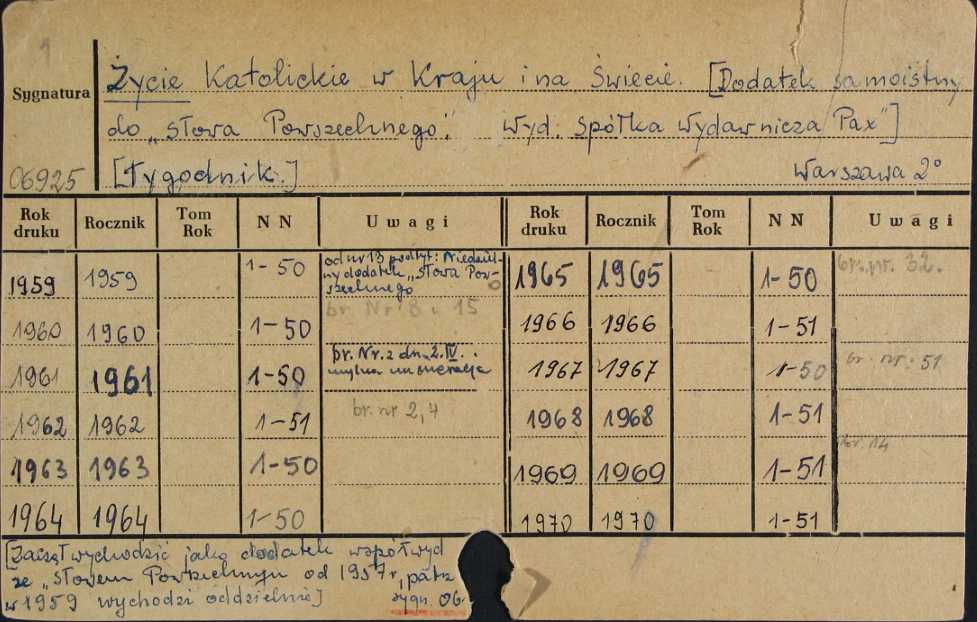 Sygnatura
Życie Katolickie w Kraju i na świecie. [Dodatek samoistny
do „Słowa Powszechnego". wyd: spółka wydawnicza Pax"]
06925 [tygodnik.] Warszawa 2°
Rok druku Rocznik Tom Rok N N Uwagi Rok druku Rocznik Tom Rok N N Uwagi
1959 1959 1-50 od nr 13 podtyt: Niedziel-
ny dodatek „Słowa Pow-
szechnego
1965 1965 1-50 br. nr. 32.
1960 1960 1-50 br. Nr 8 i 15
1966 1966 1-51
1961 1961 1-50 br. Nr. z dn. 2.IV.
mylna numeracja
1967 1967 1-50 br. nr. 51
1962 1962 1-51 br. nr 2,
1968 1968 1-51
1963 1963 1-50
1969 1969 1-51 br. 14
1964 1964 1-50
1970 1970 1-51
[Zaczął wychodzić jako dodatek współwyd
ze „Słowem Powszechnym od 1957 r, patrz
w 1959 wychodzi oddzielnie] sygn 06